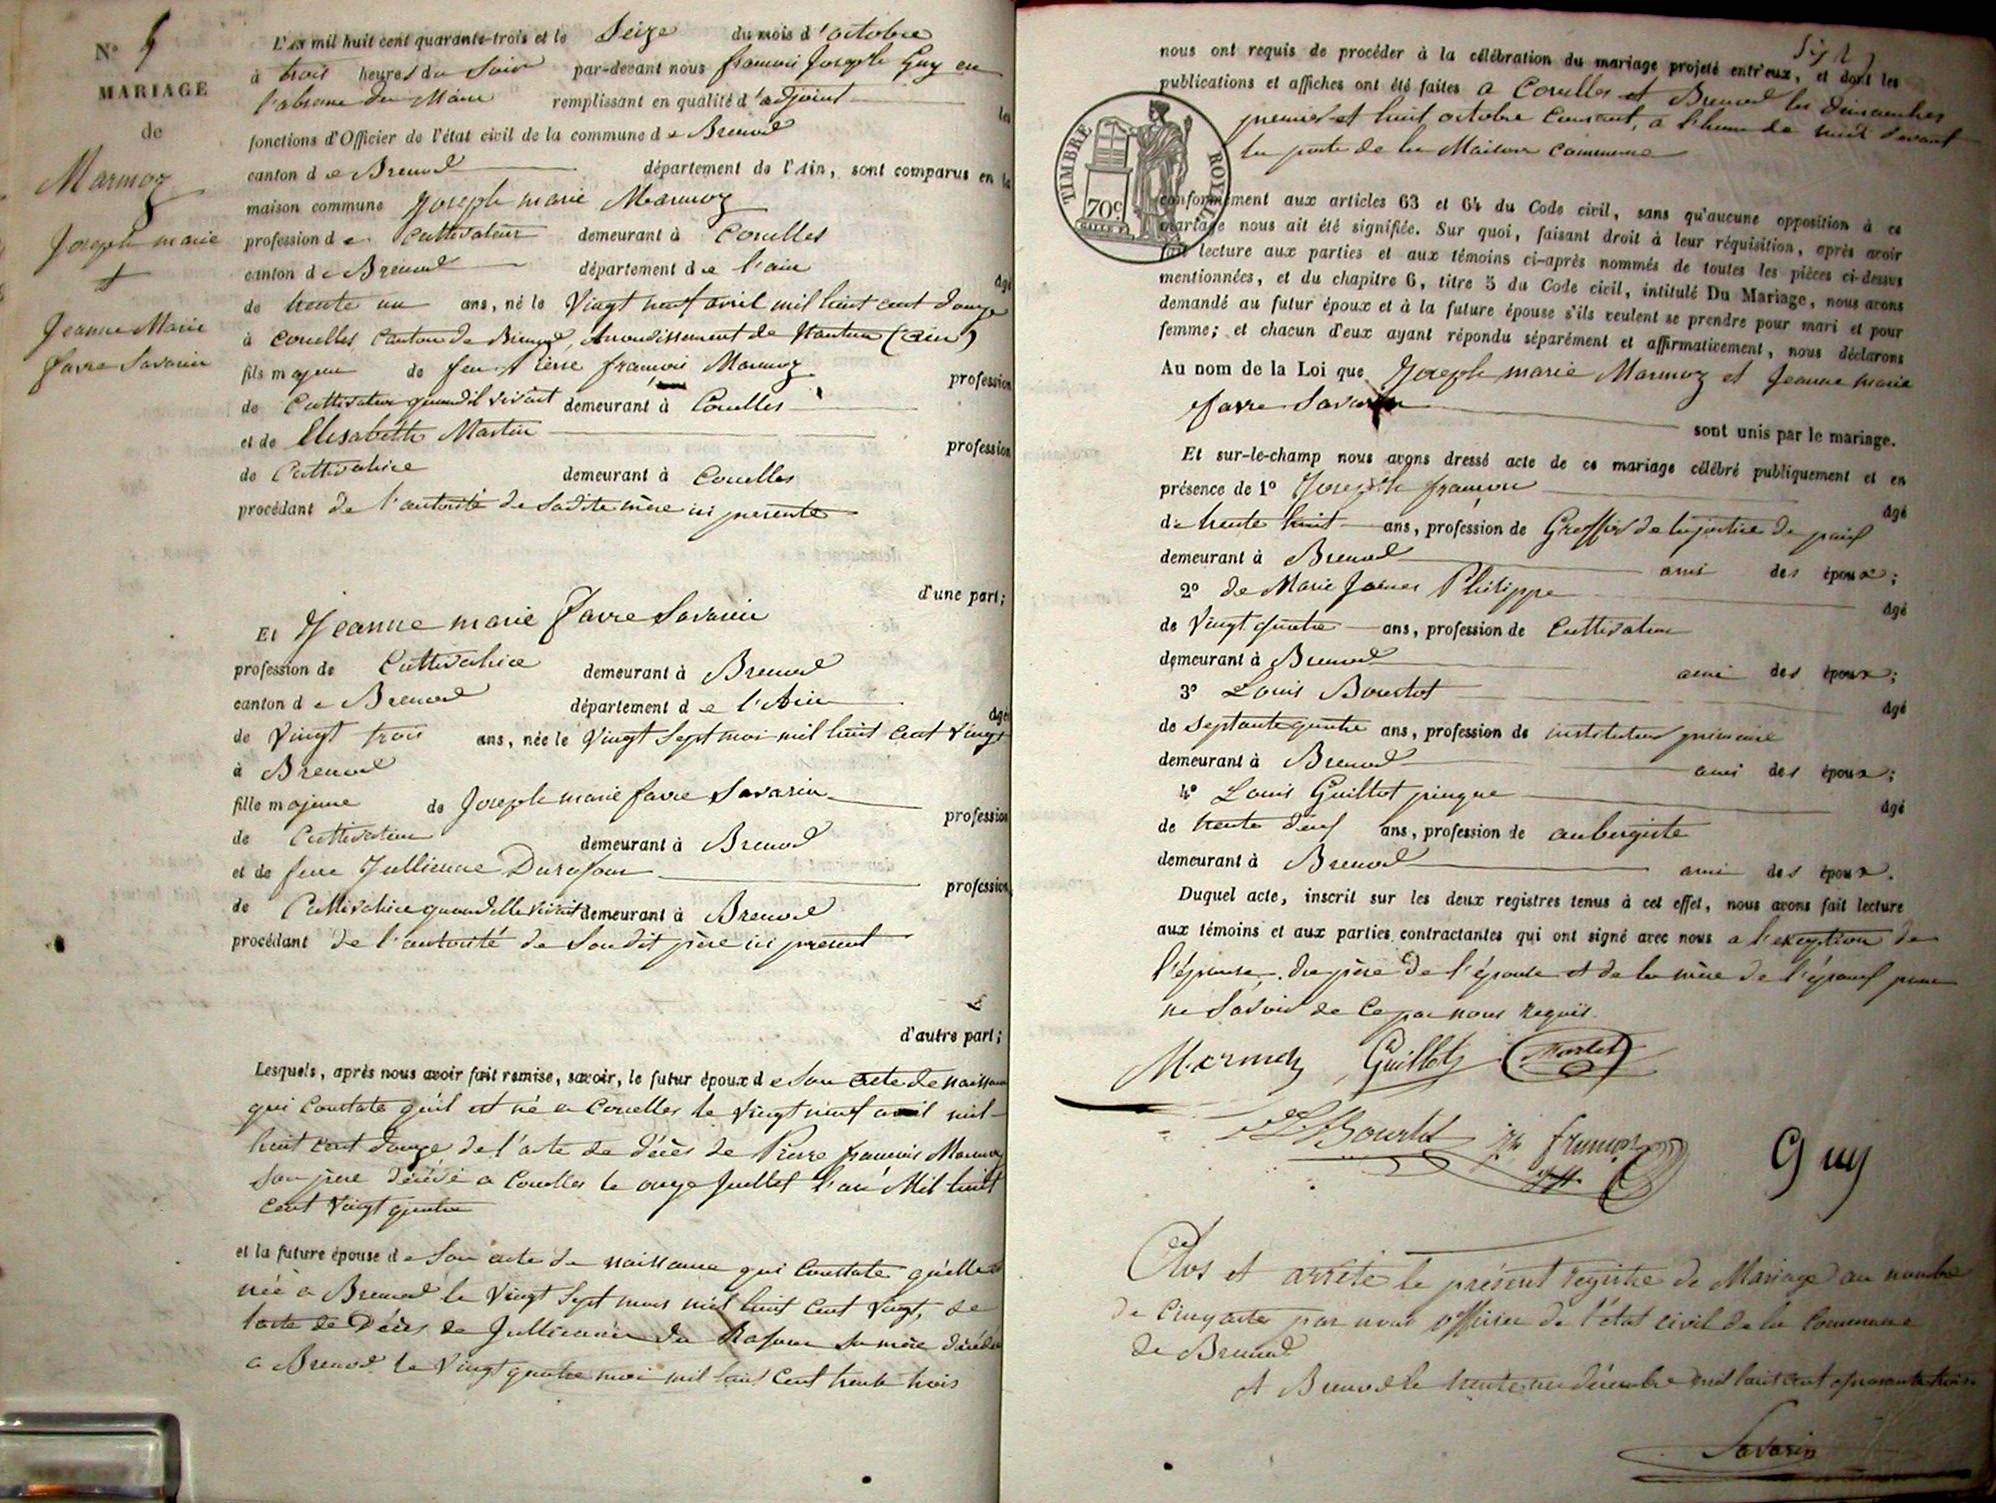 N° 5
MARIAGE
de
Marmoz
Joseph marie
+
Jeanne Marie
favre Savarin
L'an mil huit cent quarante-trois et le Seize du mois d'octobre
à trois heures du Soir par-devant nous francois Joseph Guy en
l'absence du Maire remplissant en qualité d'adjoint les
fonctions d'Officier de l'état civil de la commune de Brenod
canton de Brenod département de l'Ain, sont comparus en la
maison commune Joseph marie Marmoz
profession de Cultivateur demeurant à Corcelles
canton de Brenod département de l'ain âgé
de trente un ans, né le Vingt neuf avril mil huit cent douze
à Corcelles Canton de Brenod, Arrondissement de Nantua (ain)
fils majeur de feu Pierre francois Marmoz profession
de Cultivateur quand il vivait demeurant à Corcelles
et de Elisabeth Martin profession
de Cultivatrice demeurant à Corcelles
procédant de l'autorité de Sadite mère ici présente
d'une part;
Et Jeanne marie Favre Savarin
profession de Cultivatrice demeurant à Brenod
canton de Brenod département de l'Ain âgée
de Vingt trois ans, née le Vingt Sept mai mil huit cent Vingt
à Brenod
fille majeure de Joseph marie favre Savarin profession
de Cultivateur demeurant à Brenod
et de feue Jullienne Durafour profession
de Cultivatrice quand elle vivait demeurant à Brenod
procédant de l'autorité de Son dit père ici présent
d'autre part;
Lesquels, après nous avoir fait remise, savoir, le futur époux de Son acte de naissance
qui Constate qu'il est né a Corcelles le Vingt neuf avril mil
huit cent douze de l'acte de décès de Pierre francois Marmoz
Son père décédé a Corcelles le onze Juillet l'an Mil huit
cent Vingt quatre
et la future épouse de Son acte de naissance qui Constate qu'elle est
née a Brenod le Vingt Sept mai mil huit Cent Vingt, de
l'acte de Décès de Jullienne Du Rafour Sa mère décédée
a Brenod le Vingt quatre mai mil huit Cent trente trois
nous ont requis de procéder à la célébration du mariage projeté entr'eux, et dont les
publications et affiches ont été faites a Corcelles et Brenod les Dimanches
premier et huit octobre Courant, a l'heure de midi devant
la porte de la Maison commune
TIMBRE ROYAL
70c
conformément aux articles 63 et 64 du Code civil, sans qu'aucune opposition à ce
mariage nous ait été signifiée. Sur quoi, faisant droit à leur réquisition, après avoir
fait lecture aux parties et aux témoins ci-après nommés de toutes les pièces ci-dessus
mentionnées, et du chapitre 6, titre 5 du Code civil, intitulé Du Mariage, nous avons
demandé au futur époux et à la future épouse s'ils veulent se prendre pour mari et pour
femme; et chacun d'eux ayant répondu séparément et affirmativement, nous déclarons
Au nom de la Loi que Joseph marie Marmoz et Jeanne marie
favre Savarin sont unis par le mariage.
Et sur-le-champ nous avons dressé acte de ce mariage célébré publiquement et en
présence de 1° Joseph françon âgé
de trente huit ans, profession de Greffier de la justice de paix
demeurant à Brenod ami des époux;
2° de Marie James Philippe âgé
de Vingt quatre ans, profession de Cultivateur
demeurant à Brenod ami des époux;
3° Louis Bourlot âgé
de Septante quatre ans, profession de instituteur primaire
demeurant à Brenod ami des époux;
4° Louis Guillot âgé
de trente neuf ans, profession de aubergiste
demeurant à Brenod ami des époux.
Duquel acte, inscrit sur les deux registres tenus à cet effet, nous avons fait lecture
aux témoins et aux parties contractantes qui ont signé avec nous a l'exception de
l'épouse, du père de l'épouse et de la mère de l'époux pour
ne Savoir de Ce par nous requis.
Marmoz Guillot
Bourlot françon
Guy
Clos et arrêté le présent registre de Mariage au nombre
de Cinq actes par nous officier de l'état civil de la Commune
de Brenod
A Brenod le trente un décembre mil huit cent quarante trois
Savarin